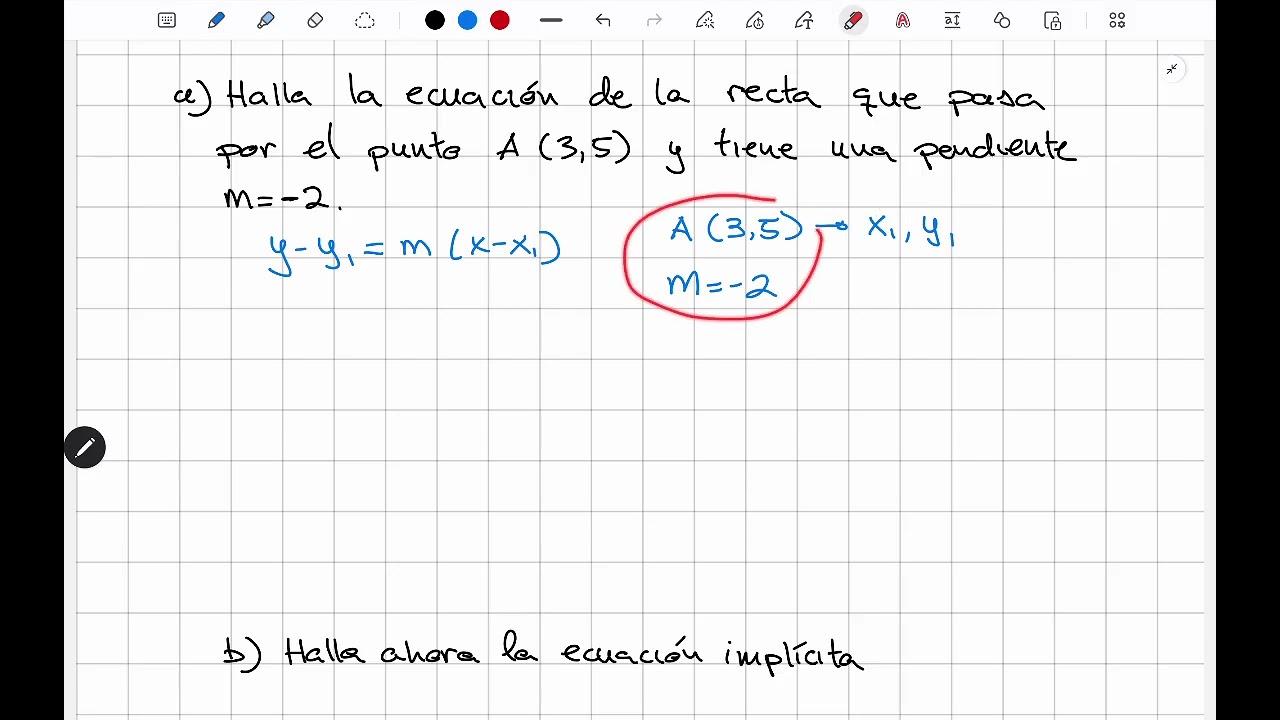 a) Halla la ecuación de la recta que pasa
por el punto A (3,5) y tiene una pendiente
m=-2.
y-y₁ = m (x-x₁)
A (3,5) → x₁, y₁
m=-2
b) Halla ahora la ecuación implícita